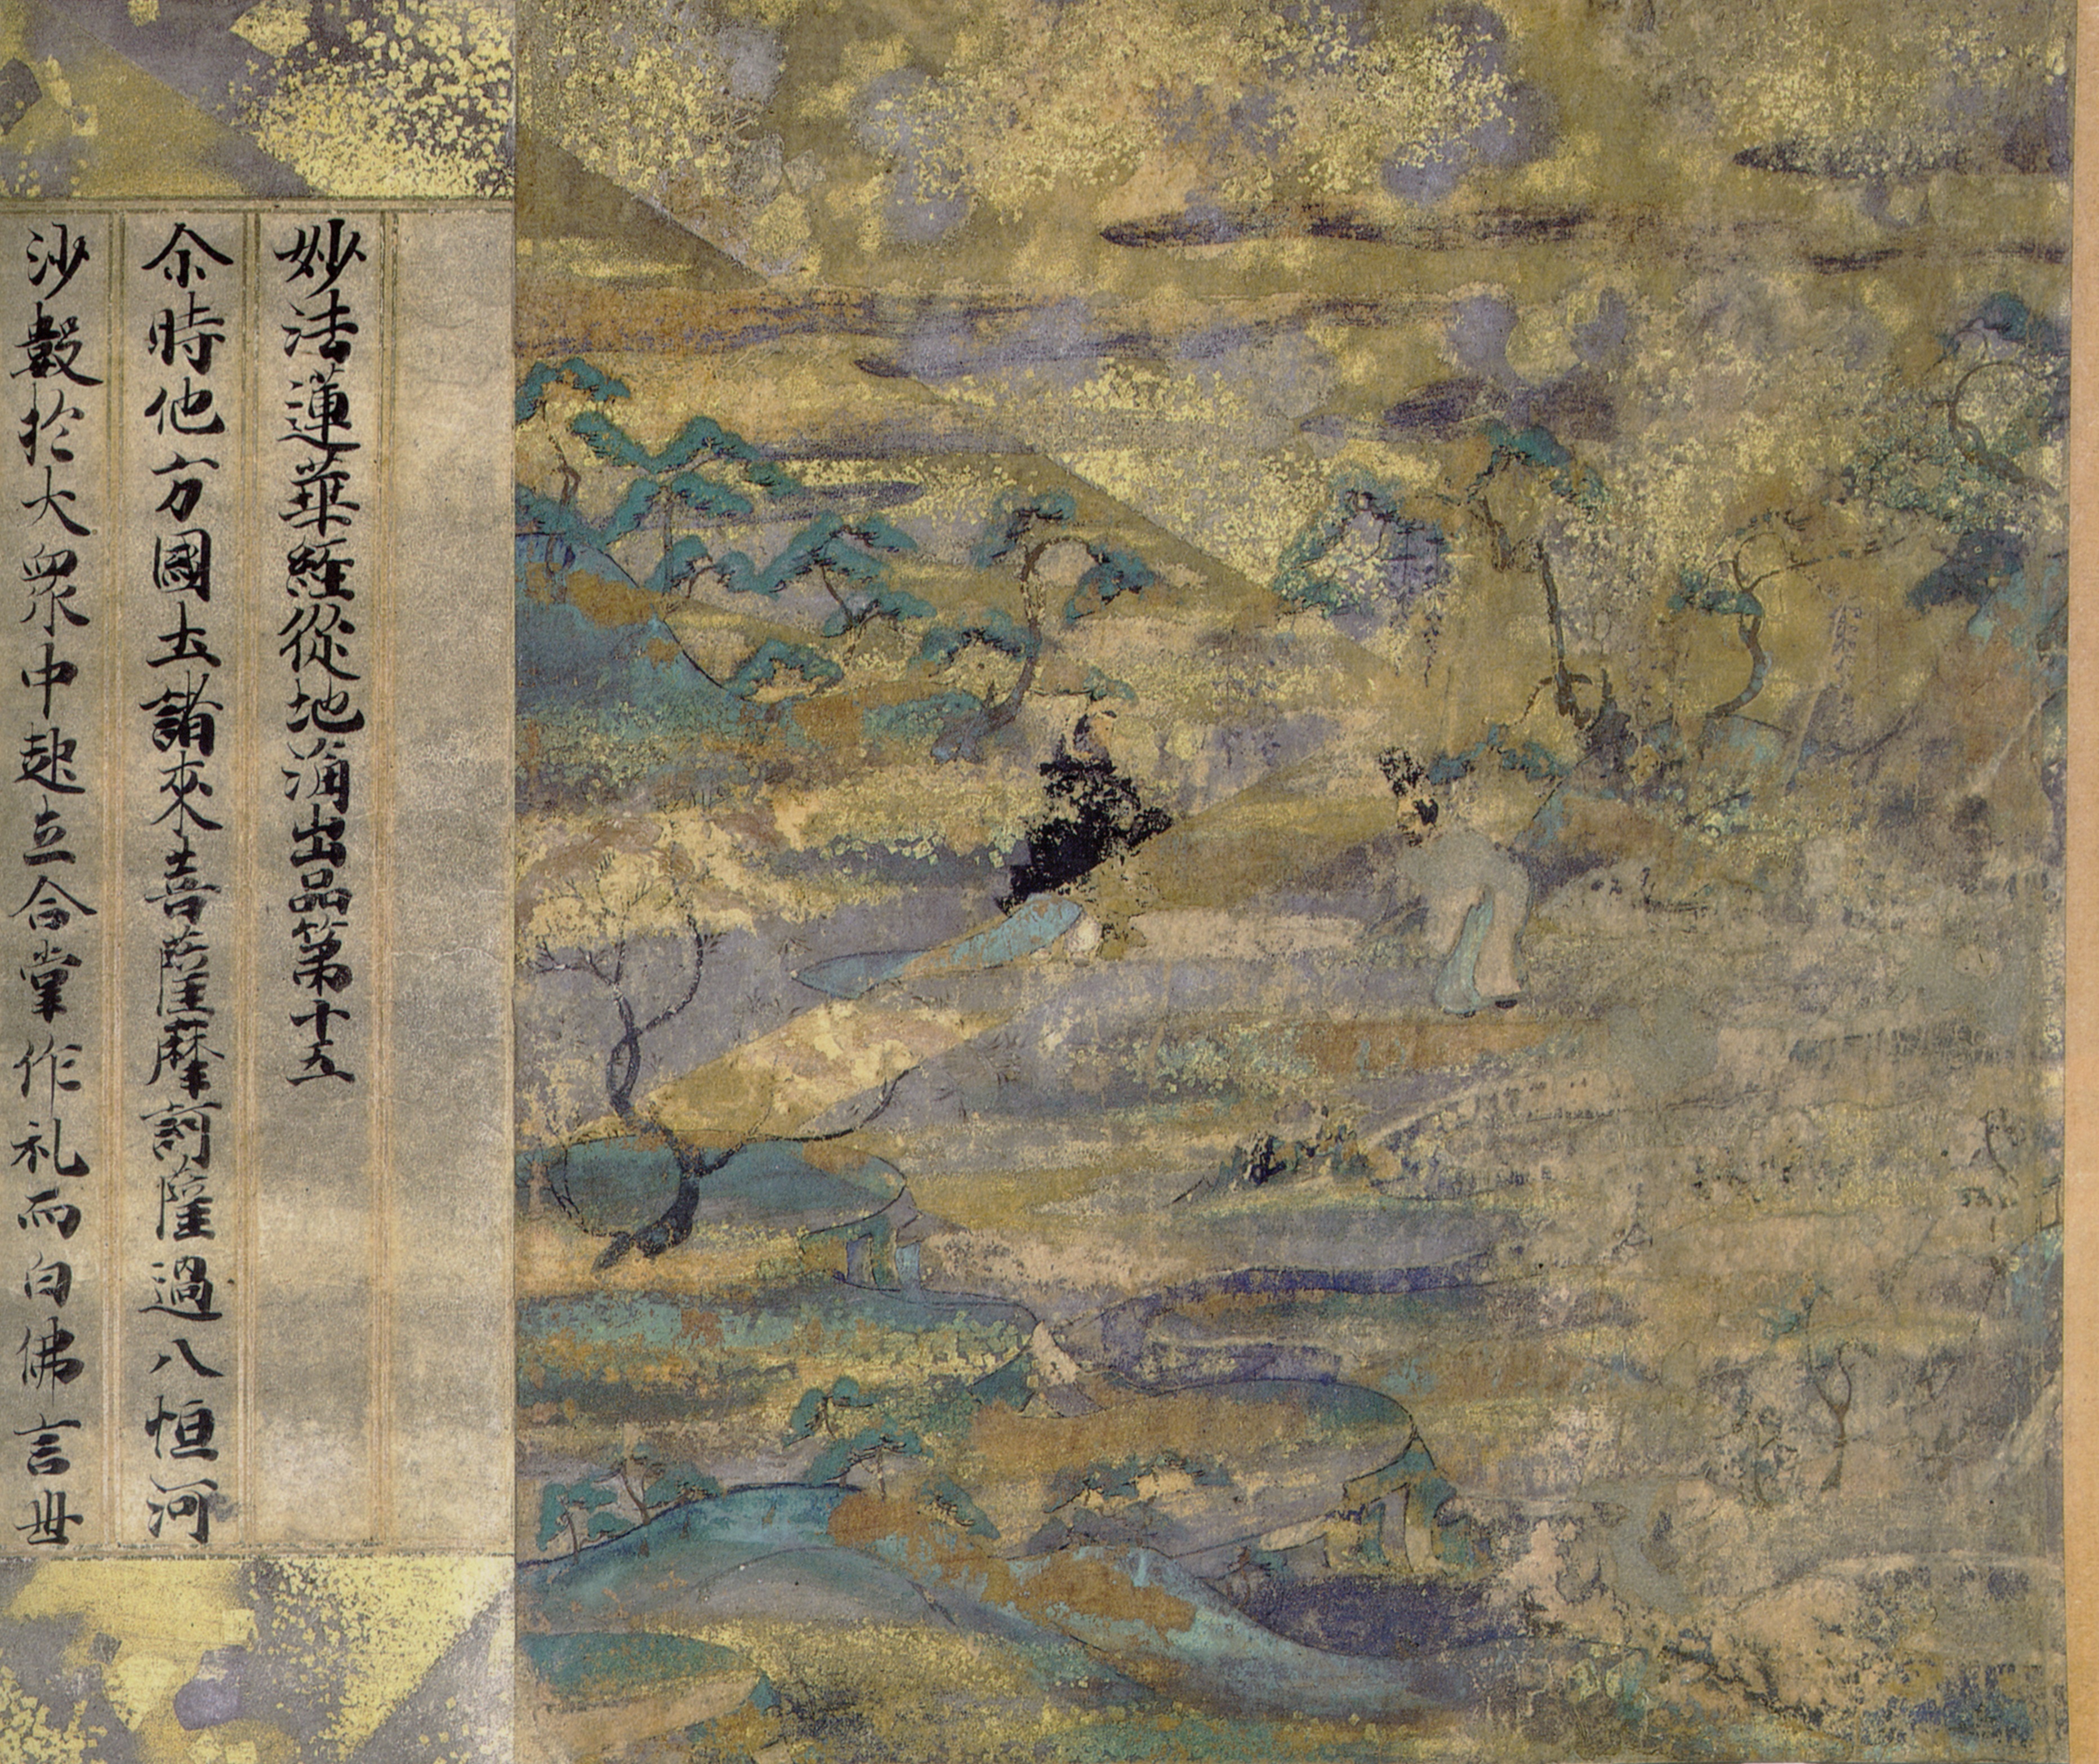 妙法蓮華經從地涌出品第十五
尒時他方國土諸來菩薩摩訶薩過八恒河
沙數於大眾中起立合掌作礼而白佛言世